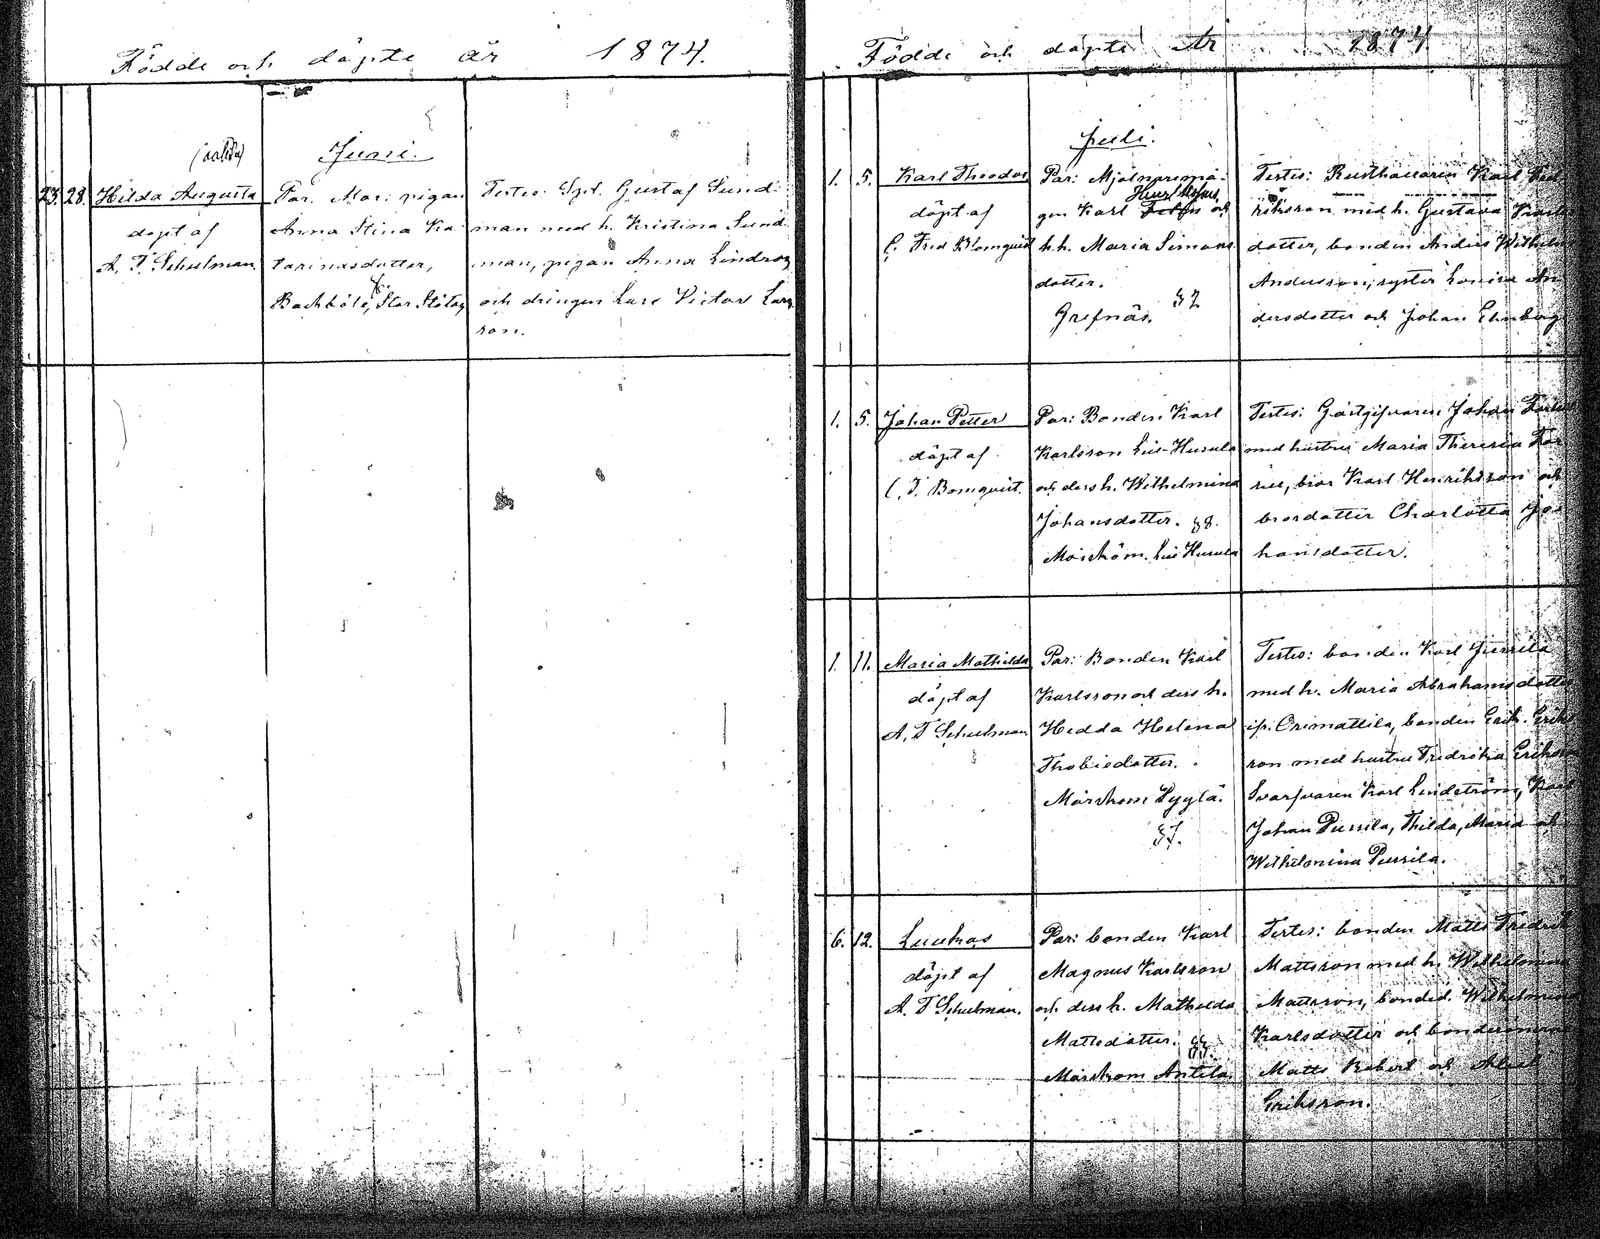 Födde och döpte år 1874.
Juni.
23. 28. Hilda Augusta
döpt af
A. T. Schulman.
Par. Mar: pigan
Anna Stina Ka-
tarinasdotter,
Backböle, Stor Stötar
Testes: Spl. Gustaf Sund-
man med h. Kristina Sund-
man, pigan Anna Lindroos
och drängen Lars Victor Lars-
son.
Födde och döpte År 1874.
Juli.
1. 5. Karl Theodor
döpt af
C. Fred Blomqvist
Par: Mjölnare
gen Karl och
h. h. Maria Simons-
dotter.
Grefnäs. 32
Testes: Rusthållaren Karl
riksson med h. Gustava Karls
dotter, bonden Anders Wilhelm
Andersson, syster Lovisa An
dersdotter och Johan Ehnberg
1. 5. Johan Petter
döpt af
C. F. Bomqvist.
Par: Bonden Karl
Karlsson Lill-Husula
och dess h. Wilhelmina
Johansdotter. 38.
Marskom. Lill Husula
Testes: Gästgifvaren Johan
med hustru Maria Theresia
bror Karl Henriksson och
brorsdotter Charlotta Jo
hansdotter.
1. 11. Maria Mathilda
döpt af
A. T. Schulman
Par: Bonden Karl
Karlsson och dess h.
Hedda Helena
Thobiedotter.
Marskom Pyylä.
37.
Testes: bonden Karl
med h. Maria Abrahamsdotter
ifr. Orimattila, bonden Erik Eriks
son med hustru Fredrika Eriksson
Svarfvaren Karl Lindström, Karl
Johan Pussila, Thilda, Maria och
Wilhelmina Pussila.
6. 12. Luukas
döpt af
A. T. Schulman.
Par: bonden Karl
Magnus Karlsson
och dess h. Mathilda
Mattsdotter. 33.
Marskom Antila
Testes: bonden Matts Fredrik
Mattsson med h. Wilhelmina
Mattsson, bonded. Wilhelmina
Karlsdotter och bondesönerna
Matts Robert och
Eriksson.